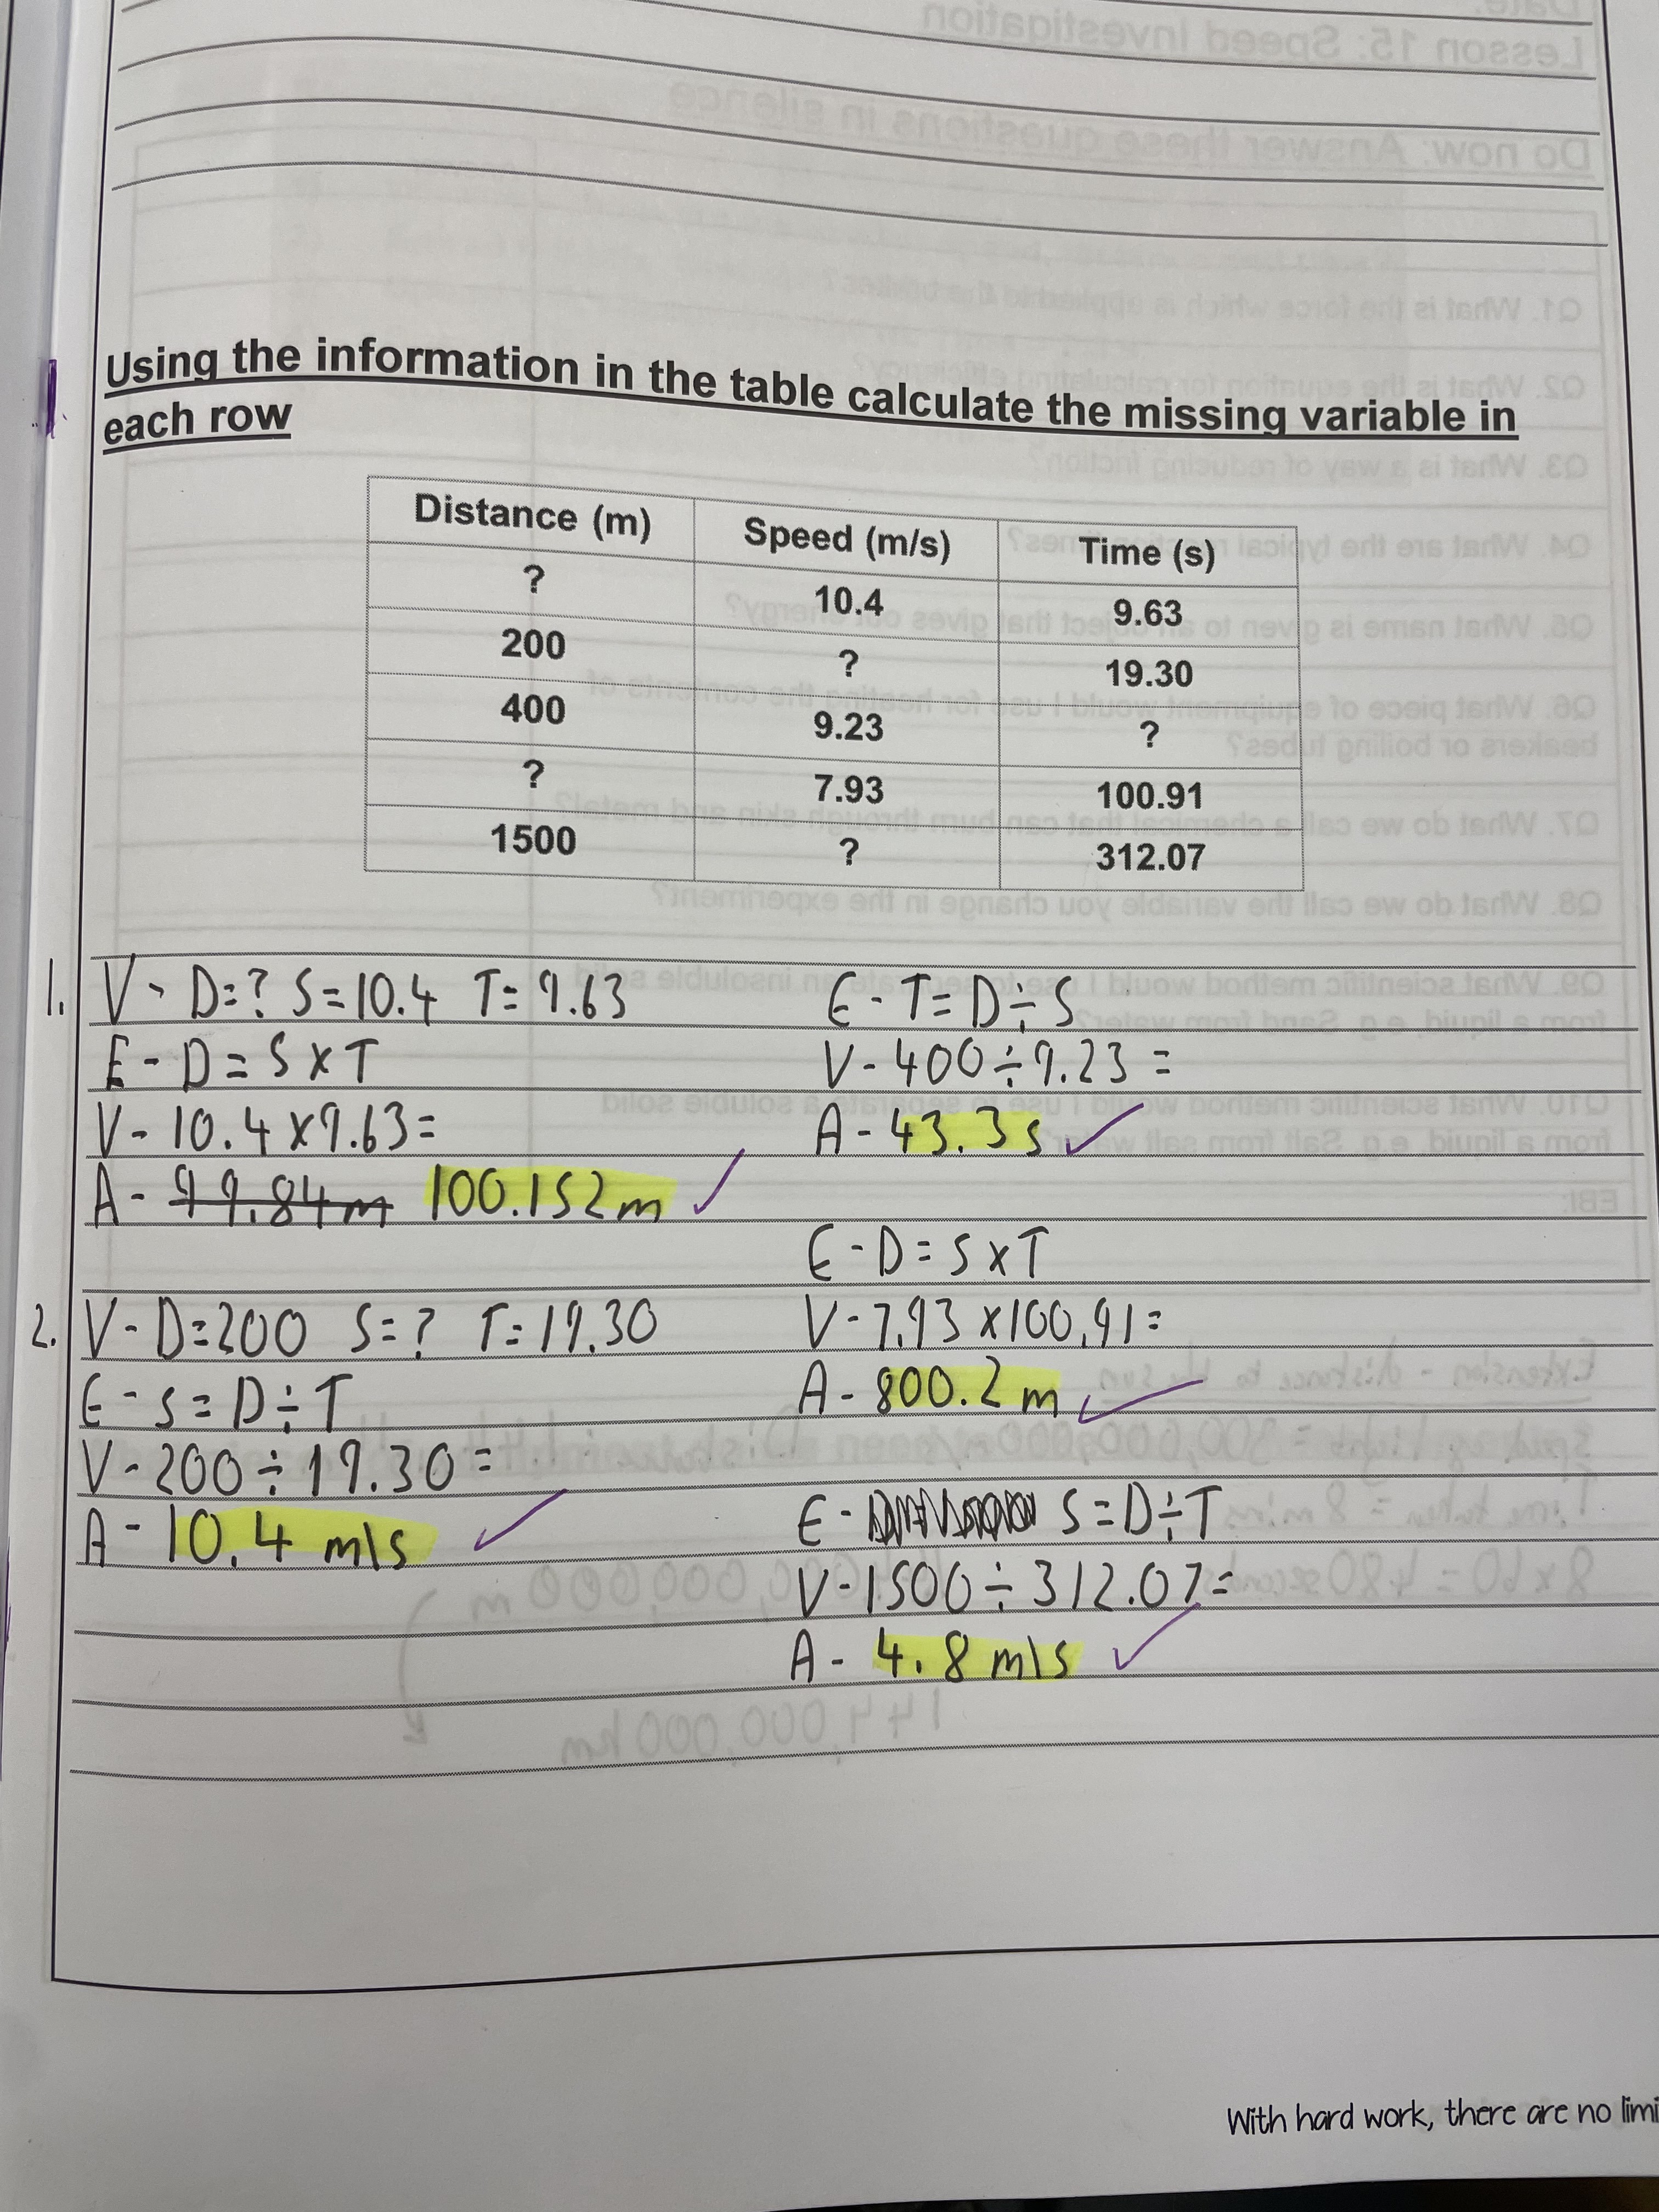 Using the information in the table calculate the missing variable in
each row
Distance (m) Speed (m/s) Time (s)
? 10.4 9.63
200 ? 19.30
400 9.23 ?
? 7.93 100.91
1500 ? 312.07
1. V - D=? S=10.4 T=9.63
E - D = S x T
V - 10.4 x 9.63=
A - 99.84m 100.152m
2. V - D=200 S=? T=19.30
E - S = D ÷ T
V - 200 ÷ 19.30 =
A - 10.4 m/s
E - T = D ÷ S
V - 400 ÷ 9.23 =
A - 43.3s
E - D = S x T
V - 7.93 x 100.91=
A - 800.2m
E - S = D ÷ T
V - 1500 ÷ 312.07=
A - 4.8 m/s
With hard work, there are no